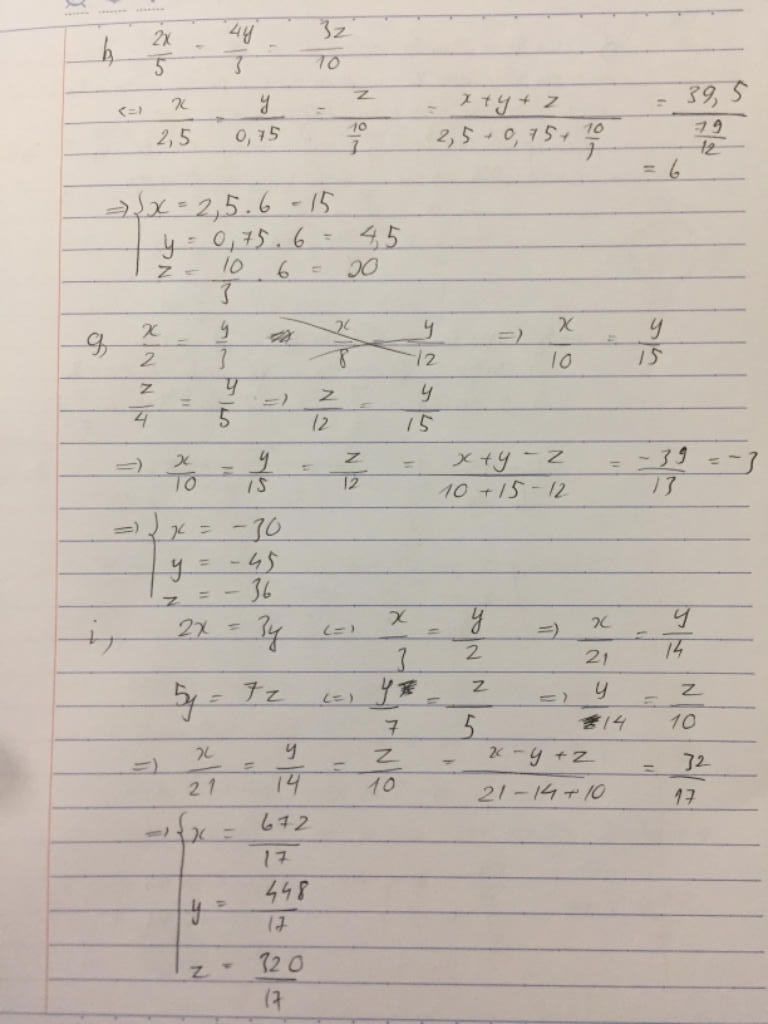 b, 2x/5 = 4y/3 = 3z/10
<=> x/2,5 = y/0,75 = z/(10/3) = (x+y+z)/(2,5+0,75+10/3) = 39,5/(79/12)
= 6
=> { x = 2,5.6 = 15
y = 0,75.6 = 4,5
z = 10/3 . 6 = 20
g, x/2 = y/3 x/8 = y/12 => x/10 = y/15
z/4 = y/5 => z/12 = y/15
=> x/10 = y/15 = z/12 = (x+y-z)/(10+15-12) = -39/13 = -3
=> { x = -30
y = -45
z = -36
i, 2x = 3y <=> x/3 = y/2 => x/21 = y/14
5y = 7z <=> y/7 = z/5 => y/14 = z/10
=> x/21 = y/14 = z/10 = (x-y+z)/(21-14+10) = 32/17
=> { x = 672/17
y = 448/17
z = 320/17